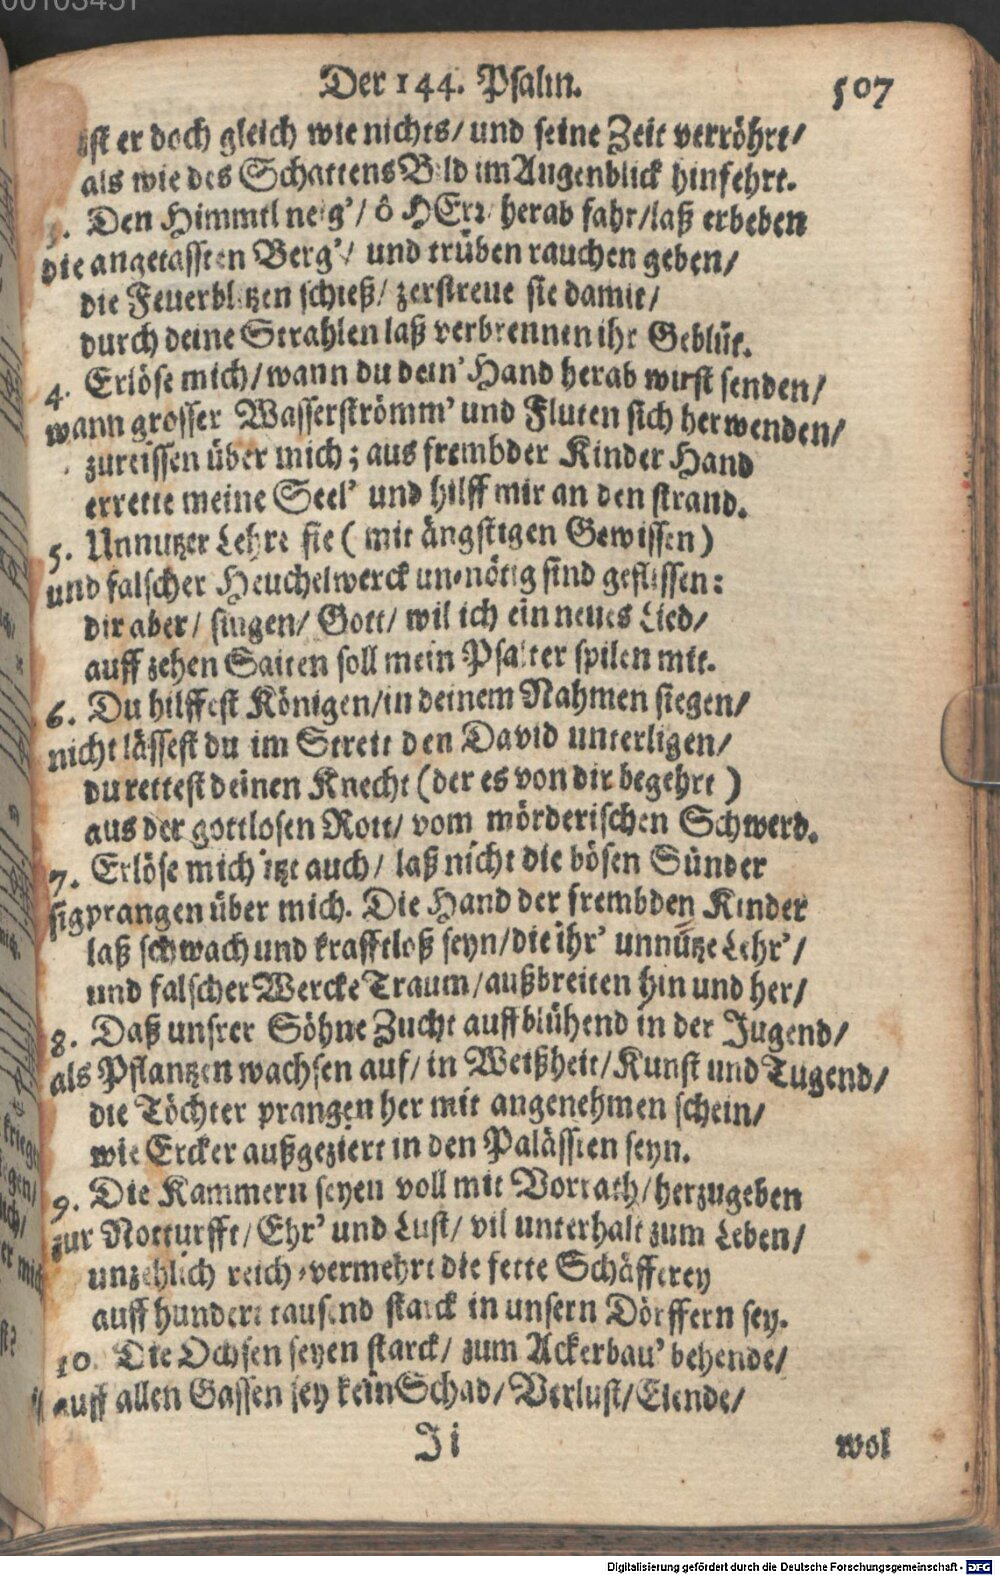 00103451
Der 144. Psalm. 507
ist er doch gleich wie nichts/ und seine Zeit verröhrt/
als wie des Schattens Bild im Augenblick hinfehrt.
3. Den Himmel neig'/ ô HErr herab fahr/ laß erbeben
die angetassten Berg'/ und trüben rauchen geben/
die Feuerblitzen schieß/ zerstreue sie damit/
durch deine Strahlen laß verbrennen ihr Geblüt.
4. Erlöse mich/ wann du dein' Hand herab wirst senden/
wann grosser Wasserströmm' und Fluten sich her wenden/
zureissen über mich; aus frembder Kinder Hand
errette meine Seel' und hilff mir an den strand.
5. Unnutzer Lehre sie ( mit ängstigen Gewissen )
und falscher Heuchelwerck un-nötig sind geflissen:
dir aber/ singen/ Gott/ wil ich ein neues Lied/
auff zehen Saiten soll mein Psalter spilen mit.
6. Du hilffest Königen/ in deinem Nahmen siegen/
nicht lässest du im Streit den David unterligen/
du rettest deinen Knecht ( der es von dir begehrt )
aus der gottlosen Rott/ vom mörderischen Schwerd.
7. Erlöse mich itzt auch/ laß nicht die bösen Sünder
sigprangen über mich. Die Hand der frembden Kinder
laß schwach und krafftloß seyn/ die ihr' unnütze Lehr'/
und falscher Wercke Traum/ außbreiten hin und her/
8. Daß unsrer Söhne Zucht auffblühend in der Jugend/
als Pflantzen wachsen auf/ in Weißheit/ Kunst und Tugend/
die Töchter prangen her mit angenehmen schein/
wie Ercker außgeziert in den Palässten seyn.
9. Die Kammern seyen voll mit Vorrath/ herzugeben
zur Notturfft/ Ehr' und Lust/ vil unterhalt zum Leben/
unzehlich reich-vermehrt die fette Schäfferey
auff hundert tausend starck in unsern Dörffern sey.
10. Die Ochsen seyen starck/ zum Ackerbau' behende/
auff allen Gassen sey kein Schad/ Verlust/ Elende/
Ji wol
Digitalisierung gefördert durch die Deutsche Forschungsgemeinschaft - DFG